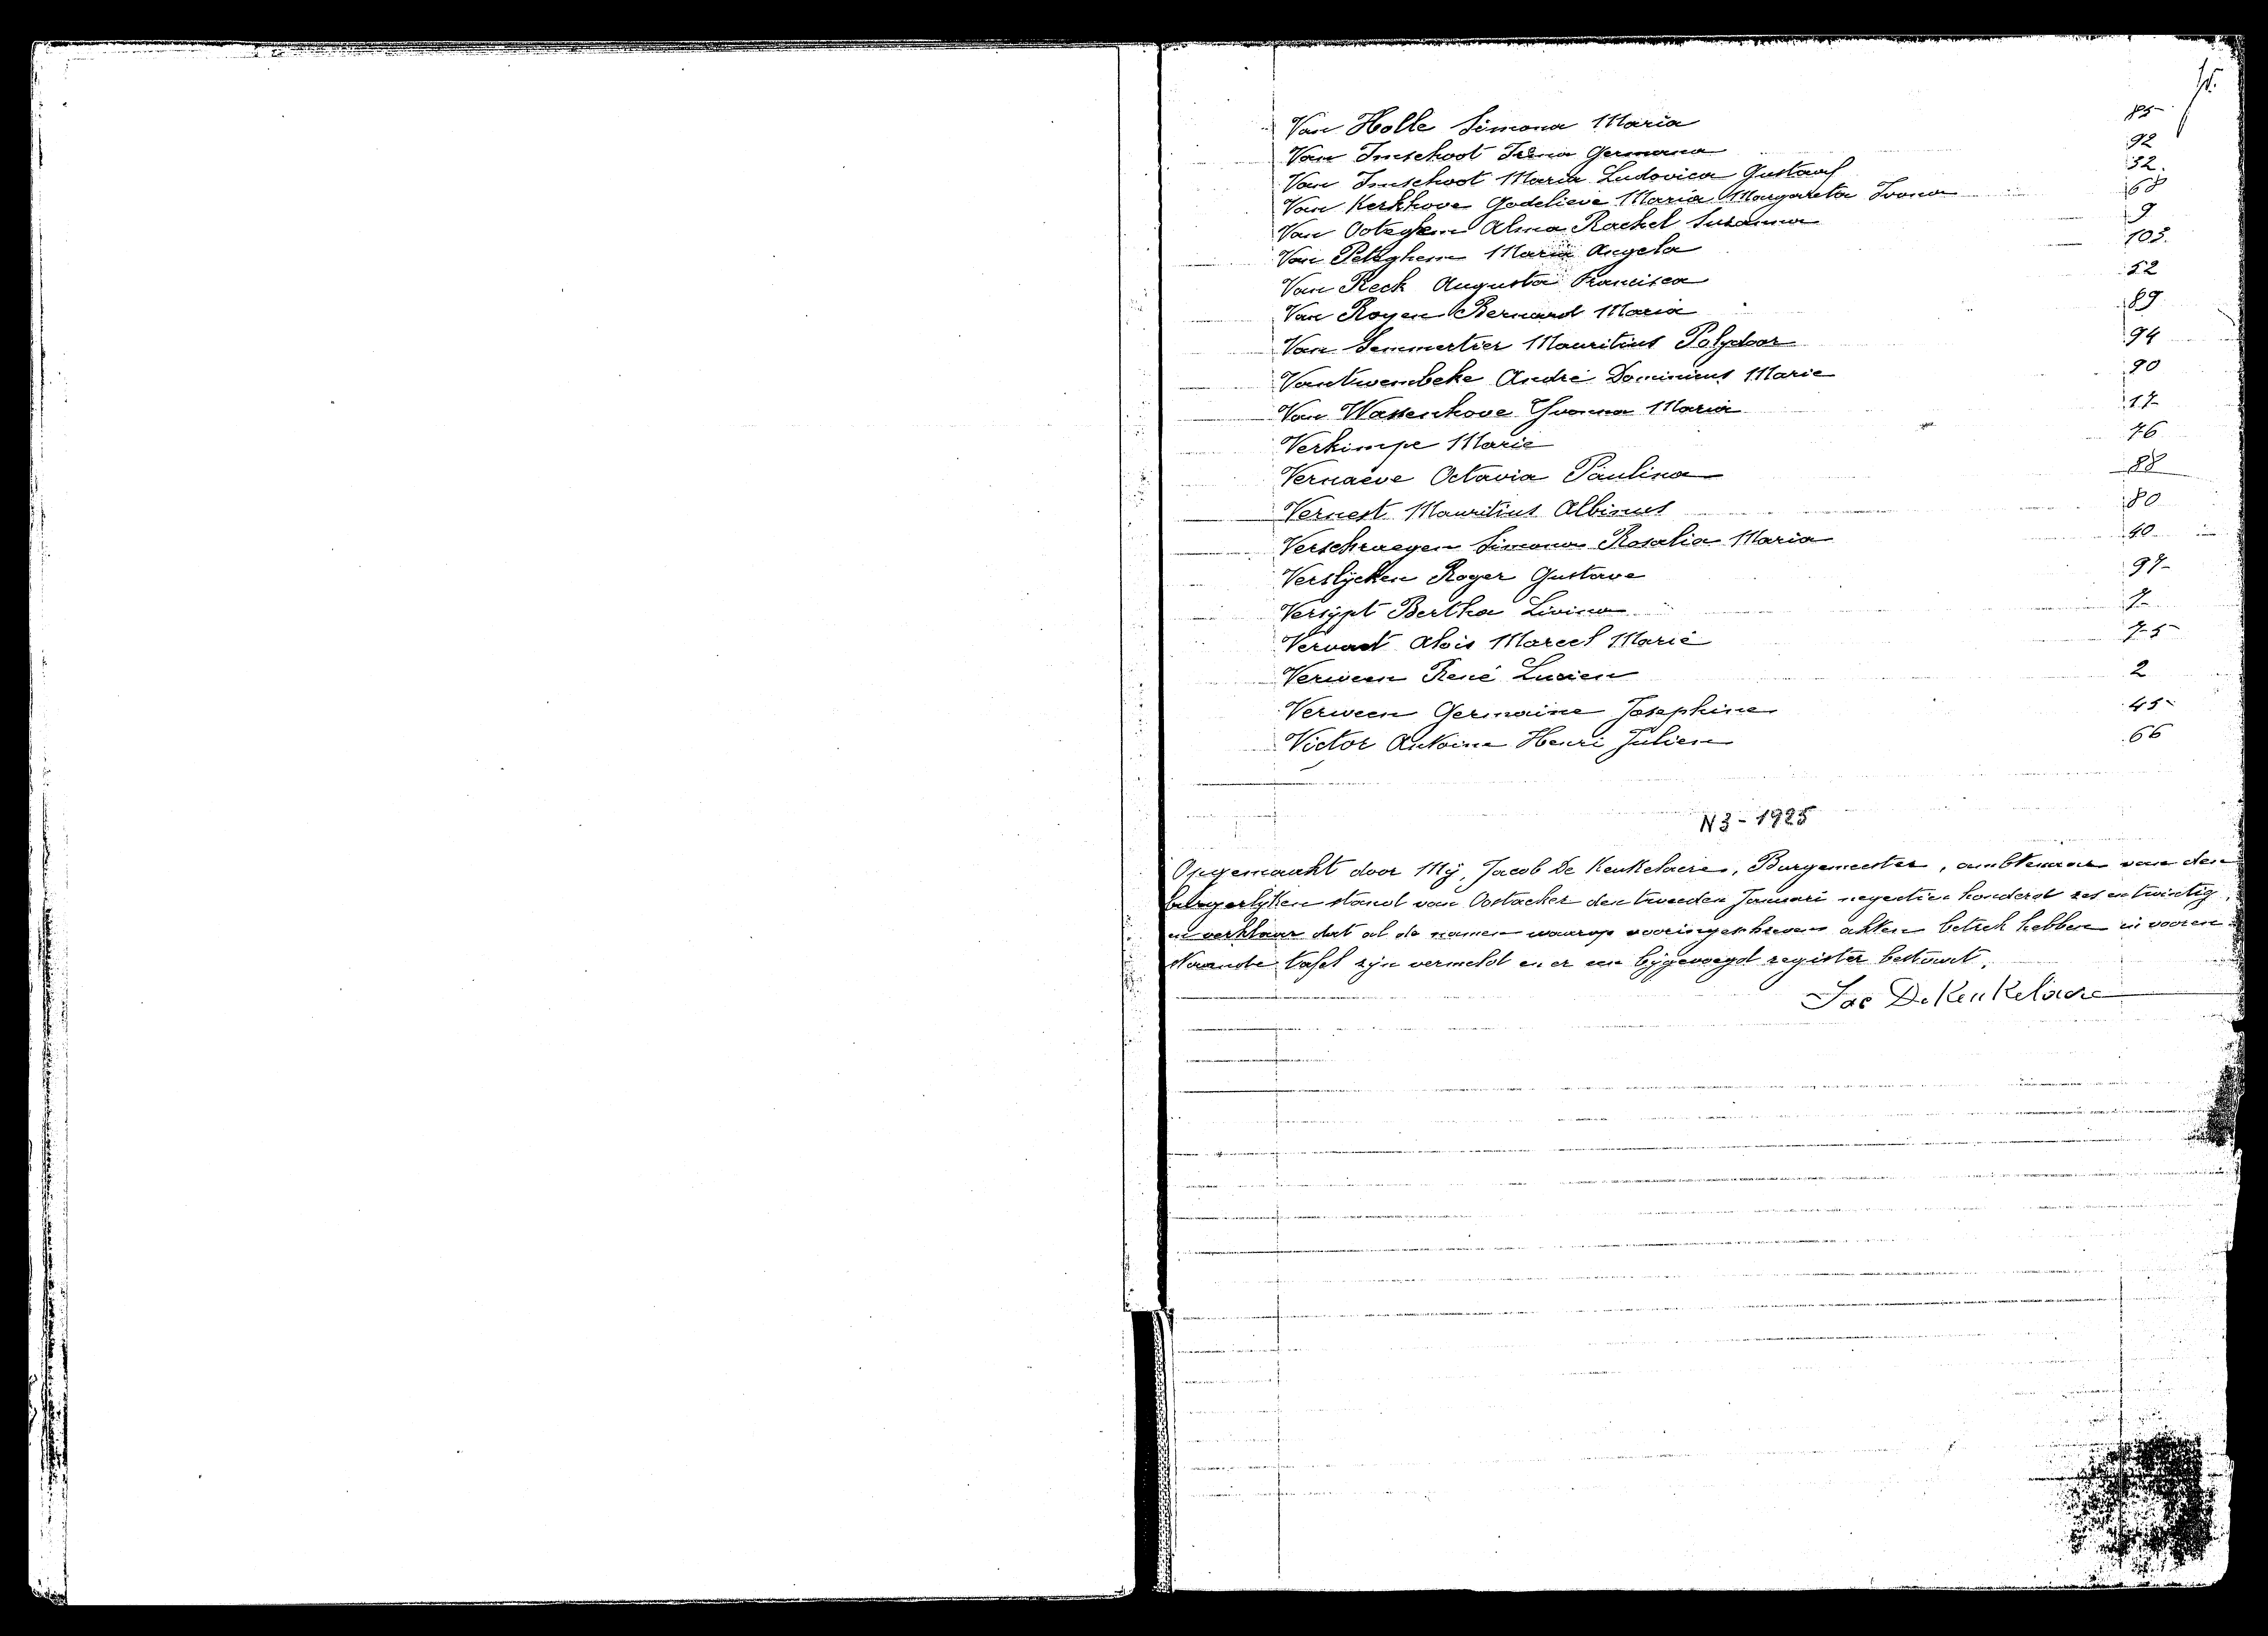 Van Holle Simona Maria 85
Van Imschoot Irena Germana 92
Van Imschoot Maria Ludovica Gustaaf 32.
Van Kerkhove Godelieve Maria Margareta Ivona 68
Van Ooteghem Alma Rachel Susanna 9
Van Peteghem Maria Angela 103.
Van Reck Augusta Francisca 52
Van Royen Bernard Maria 89
Van Semmertier Mauritius Polydoor 94
Vantwembeke André Dominicus Marie 90
Van Wassenhove Yvonna Maria 17
Verkimpe Marie 76
Vernaeve Octavia Paulina 88
Vernest Mauritius Albinus 80
Verschraegen Simona Rosalia Maria 40
Verslijcken Roger Gustave 97
Versijpt Bertha Livina 7
Vervaet Aloïs Marcel Marie 75
Verween René Lucien 2
Verween Germaine Josephine 45
Victor Antoine Henri Julien 66
N 3 - 1925
Opgemaakt door Mij, Jacob De Keukelaere, Burgemeester, ambtenaar van den
burgerlijken stand van Oostacker den tweeden Januari negentien honderd zes en twintig,
en verklaar dat al de namen waarop vooringeschreven akten betrek hebben in vooren
staande tafel zijn vermeld en er een bijgevoegd register bestaat.
Jac DeKeukelaere